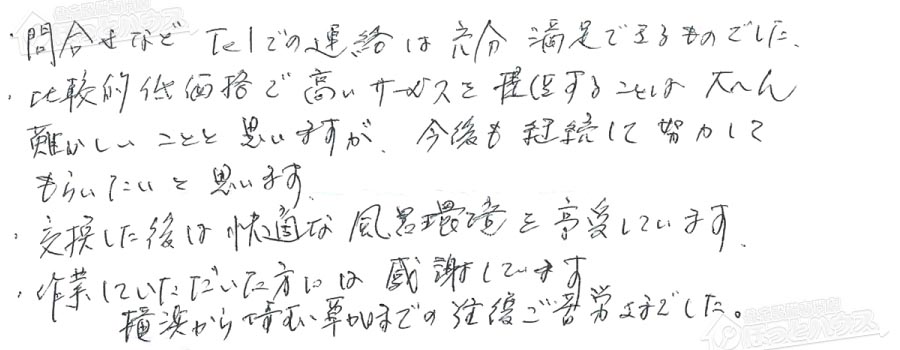 ・問合せなど Telでの連絡は充分 満足できるものでした。
・比較的低価格で高いサービスを提供することは大へん
難かしいことと思いますが、今後も継続して努力して
もらいたいと思います。
・交換した後は快適な風呂環境を享受しています。
・作業していただいた方には感謝しています
横浜から埼玉草加までの往復ご苦労さまでした。